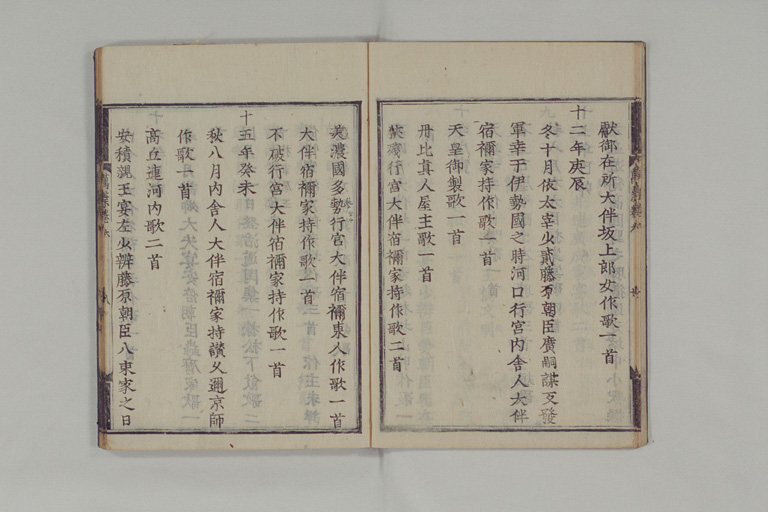 獻御在所大伴坂上郎女作歌一首
十二年庚辰
冬十月依太宰少貳藤原朝臣廣嗣謀反發
軍幸于伊勢國之時河口行宮内舎人大伴
宿禰家持作歌一首
天皇御製歌一首
丹比真人屋主歌一首
狹殘行宮大伴宿禰家持作歌二首
美濃國多勢行宮大伴宿禰東人作歌一首
大伴宿禰家持作歌一首
不破行宮大伴宿禰家持作歌一首
十五年癸未
秋八月内舎人大伴宿禰家持讃久邇京師
作歌一首
高丘連河内歌二首
安積親王宴左少辨藤原朝臣八束家之日